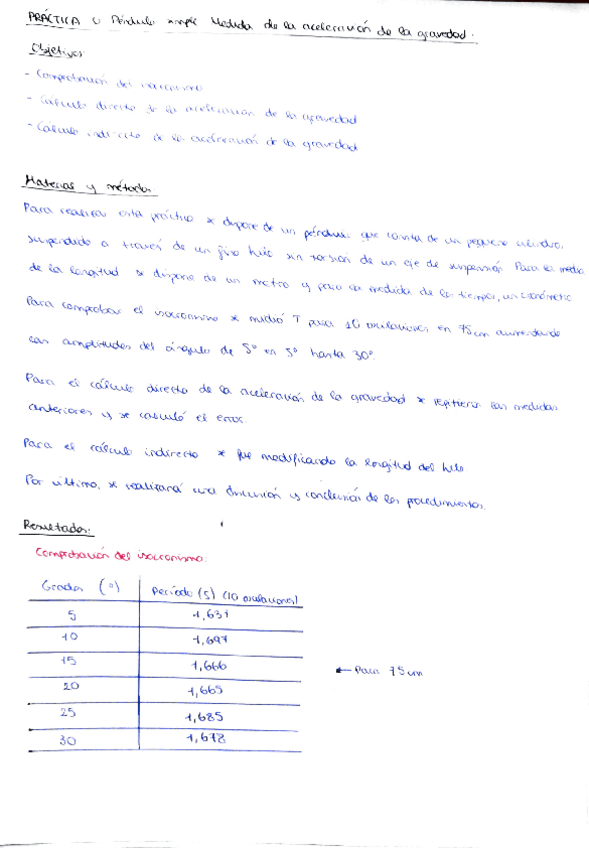 PRÁCTICA Péndulo simple Medida de la aceleración de la gravedad.
Objetivos
- Comprobación del isocronismo
- Cálculo directo de la aceleración de la gravedad
- Cálculo indirecto de la aceleración de la gravedad
Materias y métodos
Para realizar esta práctica se dispone de un péndulo que consta de un pequeño cilindro,
suspendido a través de un fino hilo sin torsión de un eje de suspensión. Para la medida
de la longitud se dispone de un metro y para la medida de los tiempos, un cronómetro
Para comprobar el isocronismo se midió T para 10 oscilaciones en 75 cm aumentando
las amplitudes del ángulo de 5° en 5° hasta 30°.
Para el cálculo directo de la aceleración de la gravedad se repitieron las medidas
anteriores y se calculó el error.
Para el cálculo indirecto se fue modificando la longitud del hilo
Por último, se realizará una discusión y conclusión de los procedimientos.
Resultados:
Comprobación del isocronismo:
Grados (°) Período (s) (10 oscilaciones)
5 1,631
10 1,697
15 1,666
20 1,665
25 1,685
30 1,678
← Para 75 cm